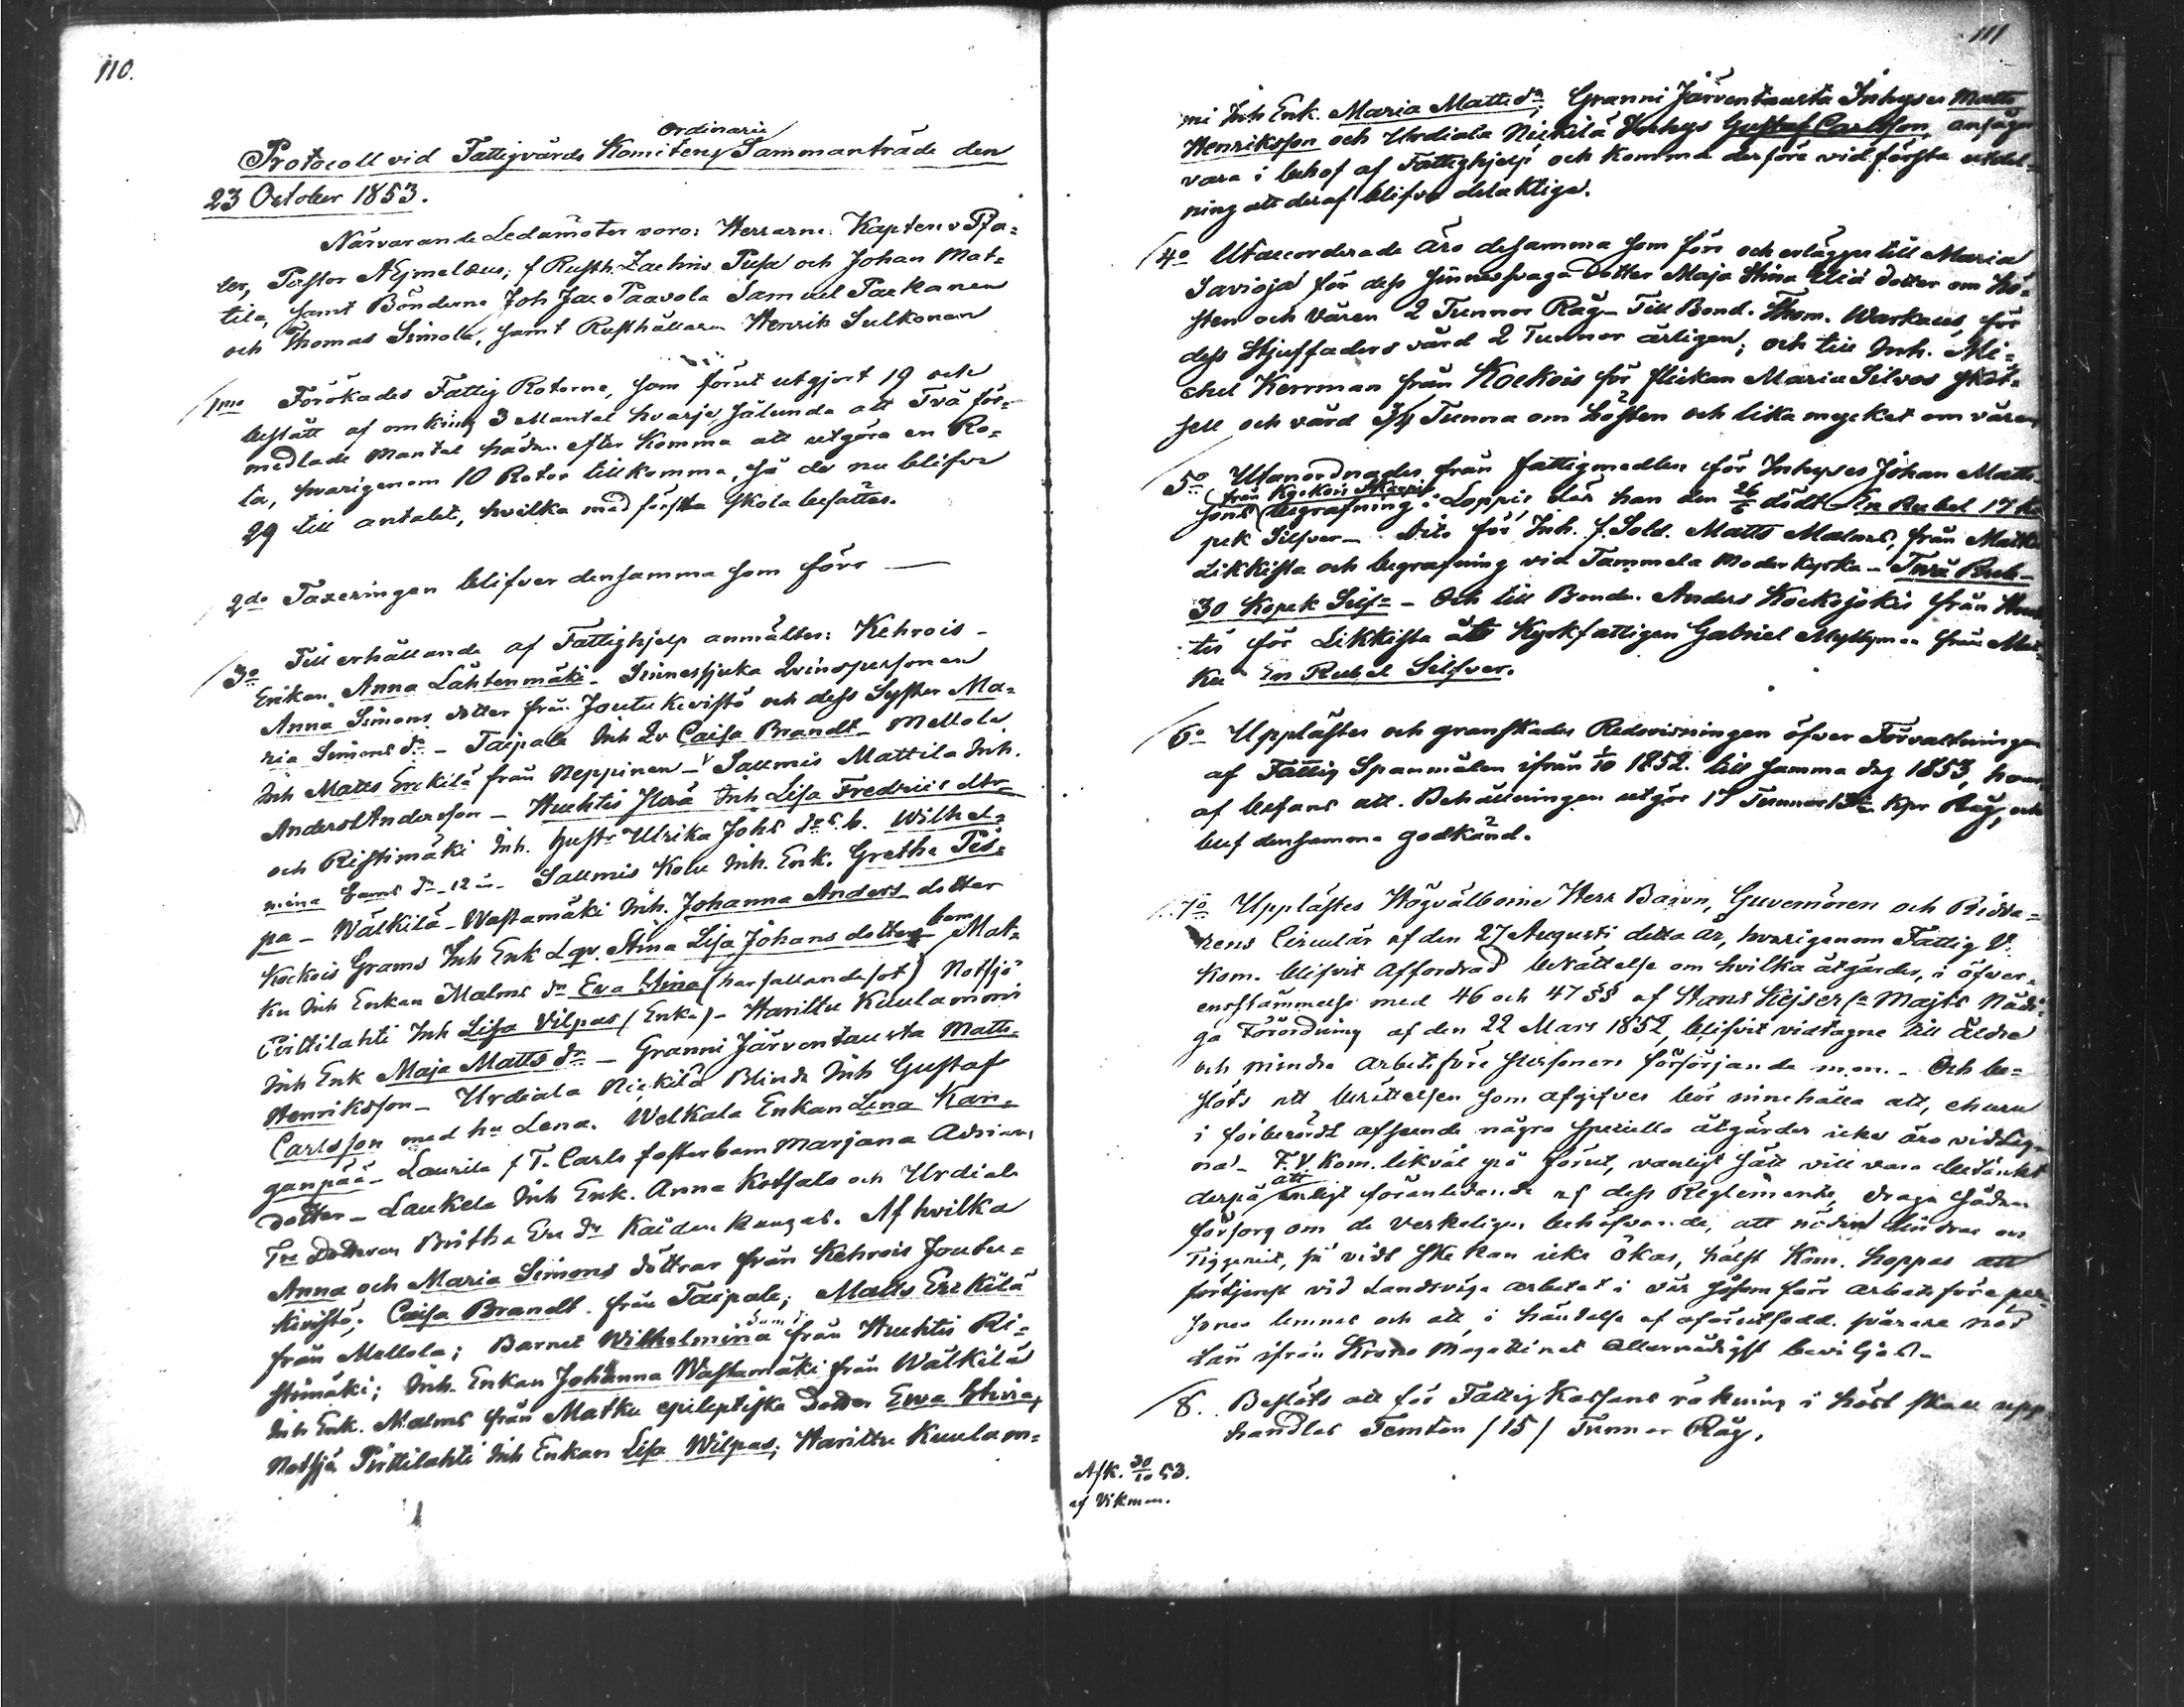 110.
Ordinarie
Protocoll vid Fattigvårds Komitens Sammanträde den
23 October 1853.
Närvarande Ledamöter voro: Herrarne Kapten v Pfa=
ler, Pastor Ajmelæus; f Rusth. Zachris Pusa och Johan Mat=
tila, samt Bönderne Joh Jac Paavola Samuel Parkanen
och Thomas Simola, samt Rusthållaren Henrik Sulkonen
1mo Förökades Fattig Rotorne, som förut utgjort 19 och
bestått af omkring 3 Mantal hvarje sålunda att Två för=
medlade Mantal hädan efter komma att utgöra en Ro=
ta, hvarigenom 10 Rotor tillkomma, så de nu blifva
29 till antalet, hvilka med första skola besättas.
2do Taxeringen blifver densamma som förr —
3o Till erhållande af Fattighjelp anmältes: Kehrois –
Enkan Anna Lähtenmäki – Sinnessjuka Qvinspersonen
Anna Simons dotter från Joutu Kivistö och dess Syster Ma=
ria Simons dr – Taipale Inh Qv Caisa Brandt – Mellola
Inh Matts Erckilä från Neppinen – Sallmis Mattila Inh.
Anders Andersson – Huhtis Ylitä Inh Lisa Fredrics dtr
och Ristimäki Inh. Hustr Ulrika Johs dr s.b. Wilhel=
mina Sams dr 12 år – Sallmis Kolu Inh. Enk. Gretha Pis=
pa – Wälkilä – Wastamäki Inh. Johanna Anders dotter
Kockois Grams Inh Enk Lqv. Stina Lisa Johans dotters barn Mat=
ku Inh Enkan Malms dr Eva Stina (har fallandesot) Notsjö
Pirttilahti Inh Lisa Vilpas (Enka) – Harittu Kuulammi
Inh Enk Maja Matts dr – Granni Järventausta Matts
Henriksson – Urdiala Nickilä Blinde Inh Gustaf
Carlsson med hu Lena. Welkala Enkan Lena Kan=
ganpää – Laurila f T. Carls fosterbarn Marjana Adrians
dotter – Laukela Inh Enk. Anna Kotsalo och Urdiala
Tre Dottren Britha Eva dr Kaiden kangas. Af hvilka
Anna och Maria Simons döttrar från Kehrois Joutu=
kivistö; Caisa Brandt från Taipale; Matts Erckilä
från Mellola; Barnet Wilhelmina från Huhtis Ri=
stimäki; Inh. Enkan Johanna Wastamäki från Wälkilä
Inh Enk. Malms från Matku epileptiska Dotter Ewa Stina,
Notsjö Pirttilahti Inh Enkan Lisa Wilpas; Harittu Kuulam=
111
mi Inh Enk. Maria Matts dr; Granni Järventausta Inhyses Matts
Henriksson och Urdiala Nickilä Inhys Gustaf Carlsson, ansågs
vara i behof af Fattighjelp och komma derföre vid första utdel=
ning att deraf blifva delaktige.
4o Utaccorderade äro desamma som förr och erlägges till Maria
Savioja för dess sinnessvaga Dotter Maja Stina Eliä dotter om hö=
sten och våren 2 Tunnor Råg – Till Bond. Thom. Warkaus, för
dess Stjuffaders vård 2 Tunnor årligen; och till Inh. Mi=
chel Herrman från Kockois för flickan Maria Silvos sköt=
sell och vård 3/4 Tunna om hösten och lika mycket om våren
5o Utanordnades från fattigmedlen för Inhyses Johan Matts
från Kockois Skarpis
sons begrafning i Loppis, der han den 26/6 dödt En Rubel 17 Ko
pek Silfver – Dito för Inh. f. Sold. Matts Malms, från Matku
Likkista och begrafning vid Tammela Moderkyrka – Två Rub–
30 Kopek Silfr – Och till Bonden Anders Kockojokis från
tis för Likkista åt Kyrkfattigen Gabriel Myllymaa från Mat=
ku En Rubel Silfver.
6o Upplästes och granskades Redovisningen öfver Förvaltningen
af Fattig Spanmålen ifrån 1/10 1852. till samma dag 1853, hvar
af befans att Behållningen utgör 17 Tunnor 13 Kpr Råg, och
blef densamma godkänd.
7o Upplästes Högvälborne Herr Baron, Guvernören och Ridda=
rens Circulär af den 27 Augusti detta år, hvarigenom Fattig V.
Kom. blifvit affordrad berättelse om hvilka åtgärder, i öfver=
ensstämmelse med 46 och 47 §§ af Hans Kejserl. Majts Nådi=
ga Förordning af den 22 Mars 1852, blifvit vidtagne till äldre
och mindre arbetsföre personers försörjande m.m. – Och be=
slöts att berättelsen som afgifves bör innehålla att, ehuru
i förberördt afseende några speciella åtgärder icke äro vidtag=
na – F.V. Kom. likväl på förut, vanligt sätt vill vara betänkt
derpå att enligt föranledande af dess Reglemente, draga sådan
försorg om de verkeligen behöfvande, att nöden lindras och
Tiggeriet, så vidt ske kan icke ökas, hälst Kom. hoppas att
förtjenst vid Landsvägs arbetet i vår socken för arbetsföre per
soner lemnas och att i händelse af oförutsedd svårare nöd
Lån ifrån Krono Magazinet Allernådigst beviljas –
8. Beslöts att för Fattig Kassans räkning i höst skall upp
handlas Femton (15) Tunnor Råg.
Afk. 30/10 53.
af Vikman.